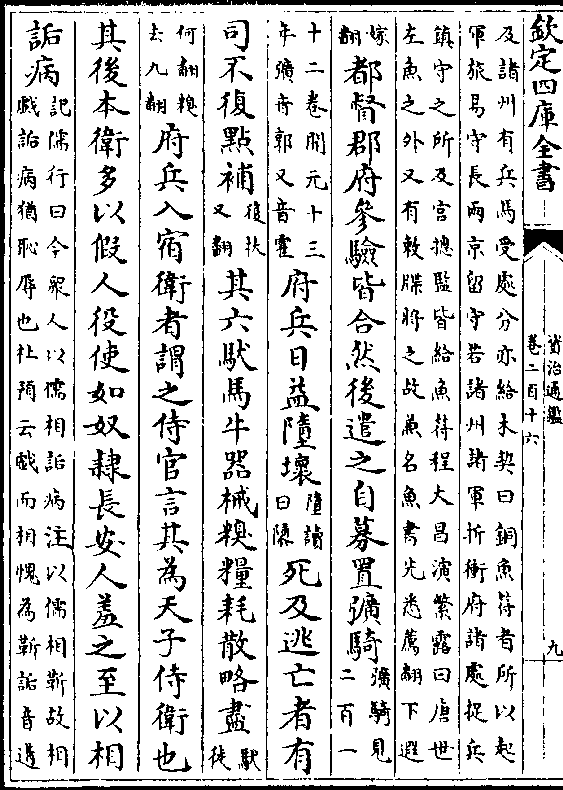 欽定四庫全書
資治通鑑
卷二百十六
九
及諸州有兵馬受處分亦給木契曰銅魚符者所以起
軍旅易守長兩京留守若諸州諸軍折衝府諸處捉兵
鎮守之所及宫總監皆給魚符程大昌演繁露曰唐世
左魚之外又有敕牒將之故兼名魚書先悉薦翻下遐
嫁翻
都督郡府參驗皆合然後遣之自募置彍騎
彍騎見二百一
十二卷開元十三
年彍音郭又音霍
府兵日益墮壞
墮讀曰隳
死及逃亡者有
司不復點補
復扶又翻
其六馱馬牛器械糗糧耗散略盡
馱徒
何翻糗
去九翻
府兵入宿衛者謂之侍官言其為天子侍衛也
其後本衛多以假人役使如奴隷長安人羞之至以相
詬病
記儒行曰今衆人以儒相詬病注以儒相靳故相
戲詬病猶恥辱也杜預云戲而相愧為靳詬音遘